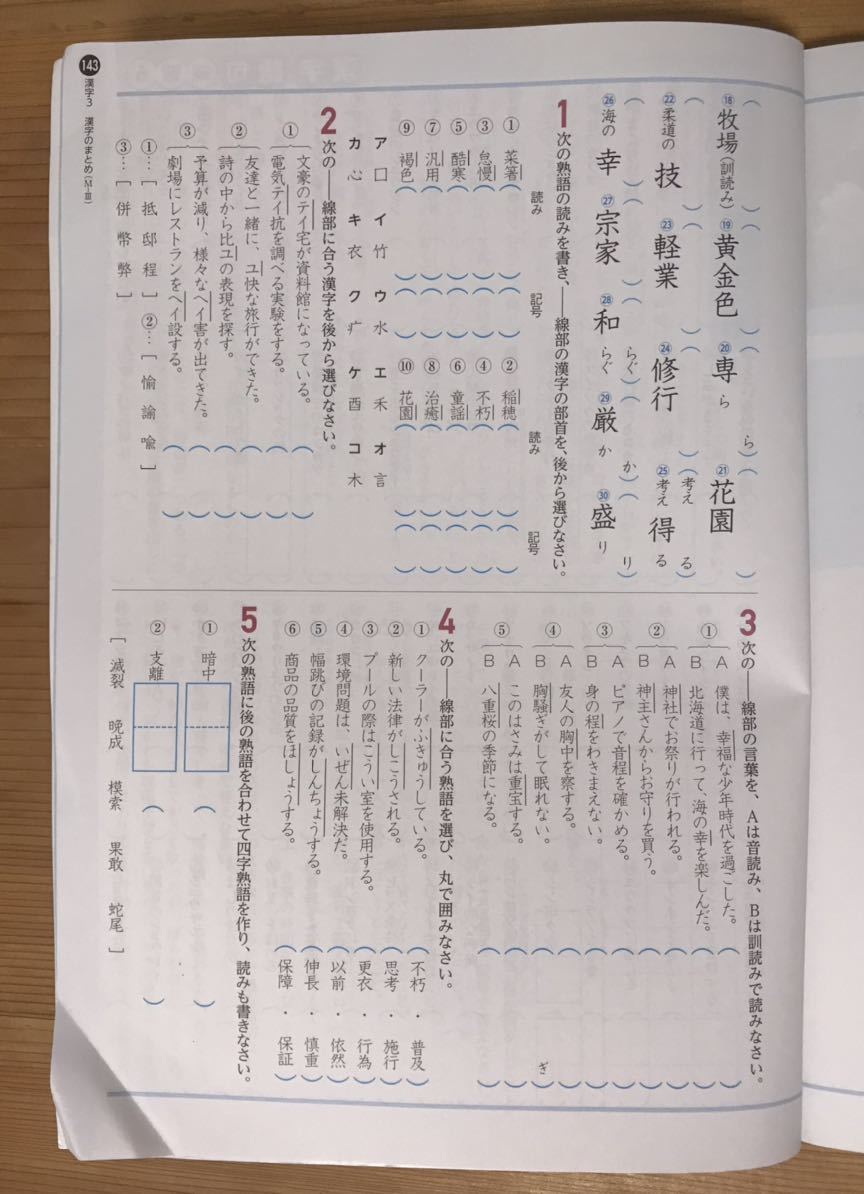 ⑱牧場(訓読み) ( ) ⑲黄金色 ( ) ⑳専ら ( ら) ㉑花園 ( )
㉒柔道の技 ( ) ㉓軽業 ( ) ㉔修行 ( ) ㉕考え得る (考え る)
㉖海の幸 ( ) ㉗宗家 ( ) ㉘和らぐ ( らぐ) ㉙厳か ( か) ㉚盛り ( り)
1 次の熟語の読みを書き、――線部の漢字の部首を、後から選びなさい。
読み 記号 読み 記号
①菜箸( )( ) ②稲穂( )( )
③怠慢( )( ) ④不朽( )( )
⑤酷寒( )( ) ⑥童謡( )( )
⑦汎用( )( ) ⑧治癒( )( )
⑨褐色( )( ) ⑩花園( )( )
ア 囗 イ 竹 ウ 水 エ 禾 オ 言
カ 心 キ 衣 ク 疒 ケ 酉 コ 木
2 次の――線部に合う漢字を後から選びなさい。
① 文豪のテイ宅が資料館になっている。 ( )
電気テイ抗を調べる実験をする。 ( )
② 友達と一緒に、ユ快な旅行ができた。 ( )
詩の中から比ユの表現を探す。 ( )
③ 予算が減り、様々なヘイ害が出てきた。 ( )
劇場にレストランをヘイ設する。 ( )
①…[ 抵 邸 程 ] ②…[ 愉 諭 喩 ]
③…[ 併 幣 弊 ]
3 次の――線部の言葉を、Aは音読み、Bは訓読みで読みなさい。
① A 僕は、幸福な少年時代を過ごした。 ( )
B 北海道に行って、海の幸を楽しんだ。 ( )
② A 神社でお祭りが行われる。 ( )
B 神主さんからお守りを買う。 ( )
③ A ピアノで音程を確かめる。 ( )
B 身の程をわきまえない。 ( )
④ A 友人の胸中を察する。 ( )
B 胸騒ぎがして眠れない。 ( ぎ )
⑤ A このはさみは重宝する。 ( )
B 八重桜の季節になる。 ( )
4 次の――線部に合う熟語を選び、丸で囲みなさい。
① クーラーがふきゅうしている。 ( 不朽 ・ 普及 )
② 新しい法律がしこうされる。 ( 思考 ・ 施行 )
③ プールの際はこうい室を使用する。 ( 更衣 ・ 行為 )
④ 環境問題は、いぜん未解決だ。 ( 以前 ・ 依然 )
⑤ 幅跳びの記録がしんちょうする。 ( 伸長 ・ 慎重 )
⑥ 商品の品質をほしょうする。 ( 保障 ・ 保証 )
5 次の熟語に後の熟語を合わせて四字熟語を作り、読みも書きなさい。
① 暗中 ( )
② 支離 ( )
[ 滅裂 晩成 模索 果敢 蛇尾 ]
143 漢字3 漢字のまとめ(M−Ⅲ)